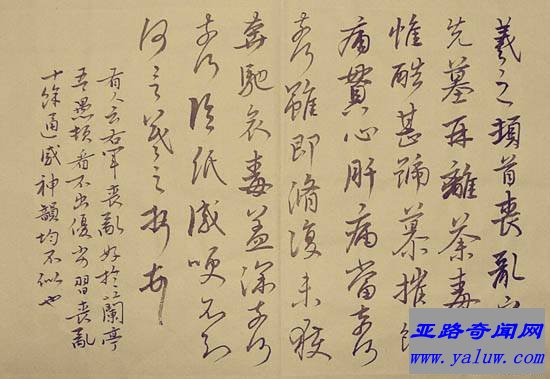 羲之頓首喪亂
先墓再離荼毒
惟酷甚號慕摧
痛貫心肝痛當奈何
奈何雖即脩復未獲
奔馳哀毒益深奈何
奈何臨紙感哽不知
何言羲之頓首
有人云右軍喪亂好於蘭亭
吾愚頑看不出優劣習喪亂
十餘通感神韻均不似也
亚路奇闻网
www.yaluw.com